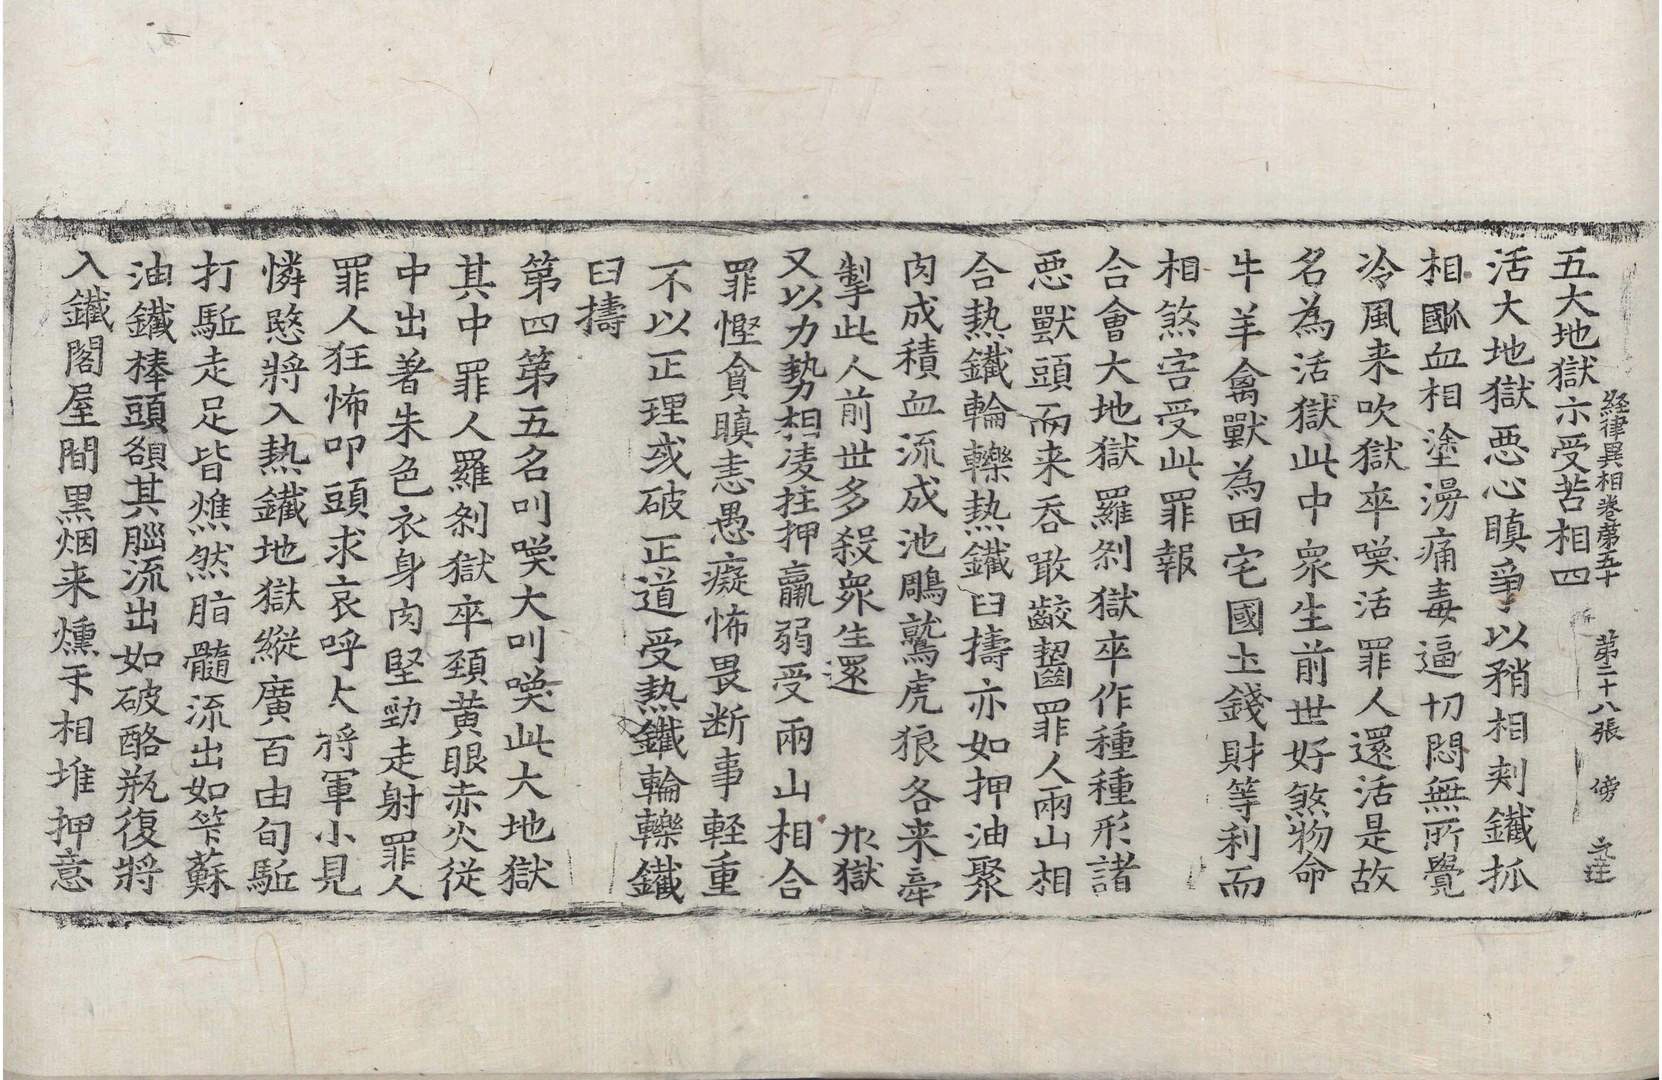 経律異相卷第五十 第二十八張 傍
五大地獄示受苦相四
活大地獄惡心瞋爭以矟相刺鐵抓
相國血相塗漫痛毒逼切悶無所覺
冷風来吹獄卒喚活罪人還活是故
名為活獄此中衆生前世好煞物命
牛羊禽獸為田宅國土錢財等利而
相煞害受此罪報
合會大地獄羅刹獄卒作種種形諸
惡獸頭而来吞噉齩齧罪人兩山相
合熱鐵輪轢熱鐵臼擣亦如押油聚
肉成積血流成池鵰鷲虎狼各来牽
掣此人前世多殺衆生還 獄
又以力勢相凌拄押羸弱受兩山相合
罪慳貪瞋恚愚癡怖畏断事軽重
不以正理或破正道受熱鐵輪轢鐵
臼擣
第四第五名叫喚大叫喚此大地獄
其中罪人羅刹獄卒頚黄眼赤火従
中出著朱色衣身肉堅勁走射罪人
罪人狂怖叩頭求哀呼大將軍小見
憐愍將入熱鐵地獄縦廣百由旬駈
打駈走足皆燋然脂髓流出如笮蘇
油鐵棒頭頟其𦛁流出如破酪瓶復將
入鐵閣屋間黒烟来燻互相堆押意